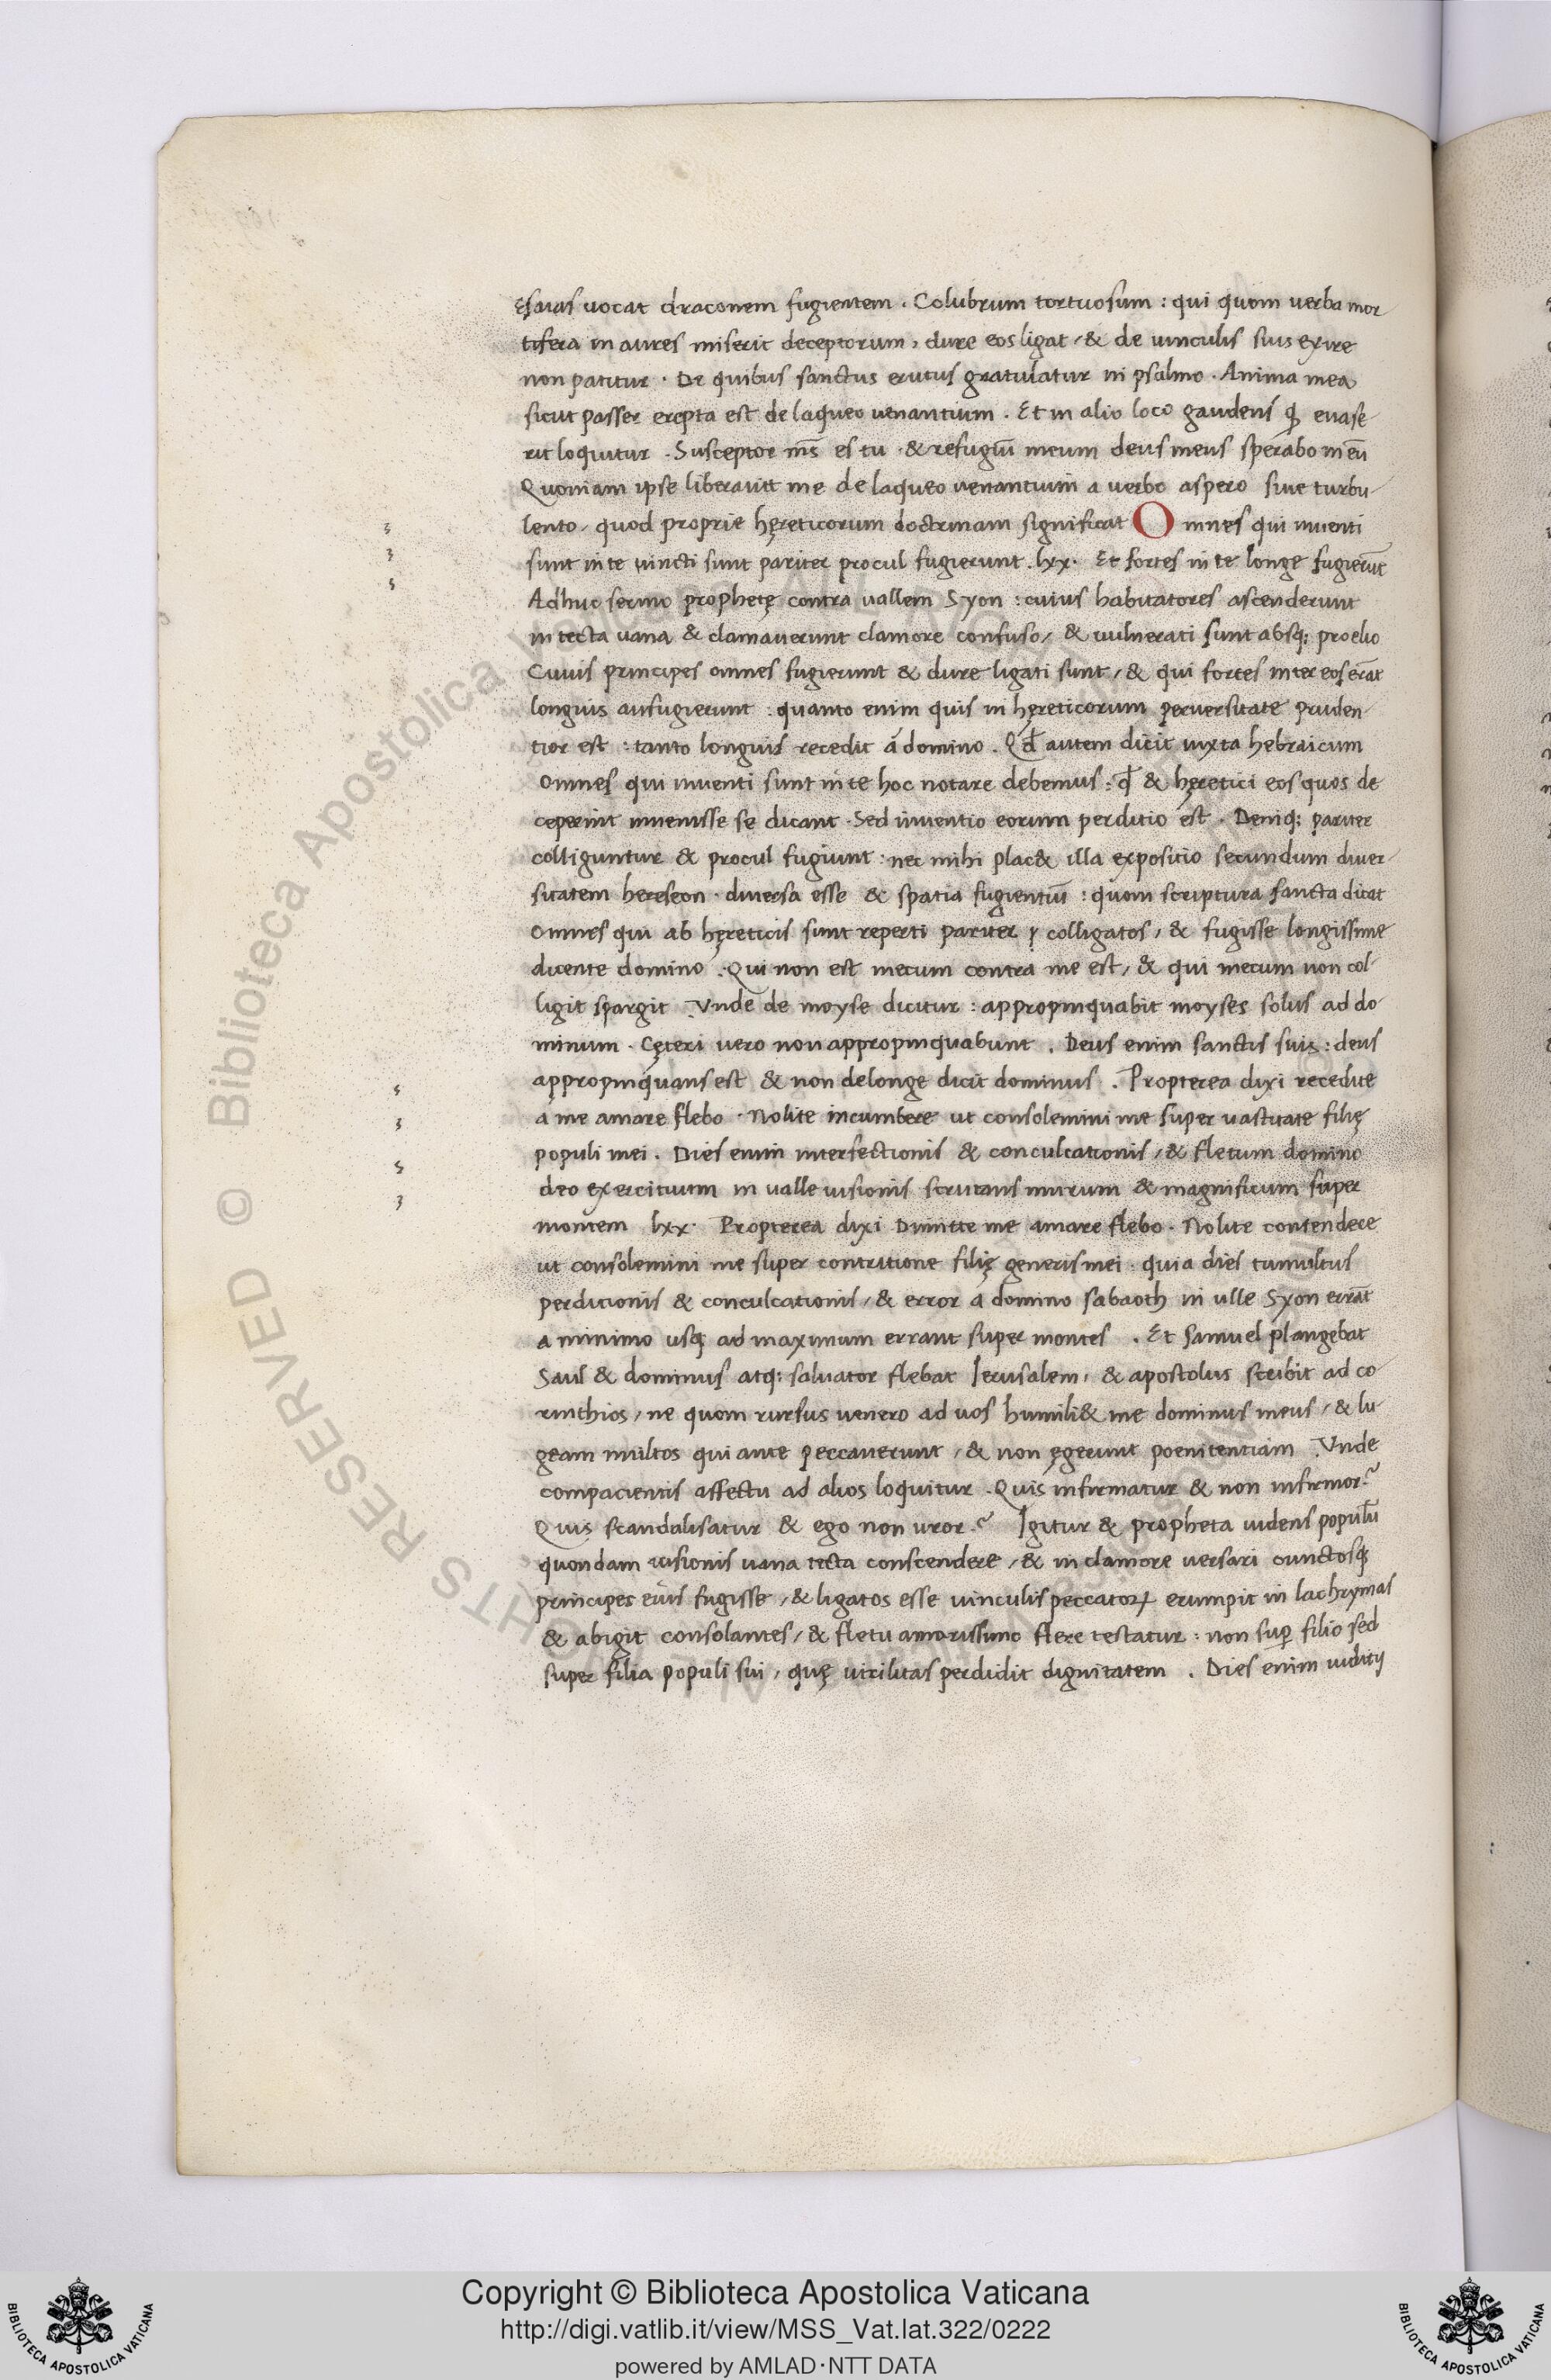 Esaias vocat draconem fugientem . Colubrum tortuosum : qui quom verba mor
tifera in aures miserit deceptorum , dure eos ligat / & de vinculis suis exire
non patitur . De quibus sanctus erutus gratulatur in psalmo . Anima mea
sicut passer erepta est de laqueo venantium . Et in alio loco gaudens ꝙ euase-
rit loquitur . Susceptor m̄s es tu . & refugiū meum deus meus sperabo in eū
Quoniam ipse liberauit me de laqueo venantium a verbo aspero siue turbu-
lento . quod proprie hęreticorum doctrinam significat Omnes qui inuenti
sunt in te vincti sunt pariter procul fugierunt . lxx . Et fortes in te longe fugierūt
Adhuc sermo prophetę contra vallem Syon : cuius habitatores ascenderunt
in tecta uana & clamauerunt clamore confuso / & uulnerati sunt absq; proelio
Cuius principes omnes fugierunt & dure ligati sunt / & qui fortes inter eos erāt
longius aufugierunt : quanto enim quis in hęreticorum peruersitate pruden-
tior est : tanto longius recedit á domino . Qđ autem dicit iuxta hebraicum
Omnes qui inuenti sunt in te hoc notare debemus : ꝙ & hęretici eos quos de
ceperint inuenisse se dicant . Sed inuentio eorum perditio est . Deniq; pariter
colliguntur & procul fugiunt : nec mihi plac& illa expositio secundum diuer-
sitatem hereseon . diuersa esse & spatia fugientiū : quom scriptura sancta dicat
Omnes qui ab hęreticis sunt reperti pariter colligatos / & fugisse longissime
dicente domino . Qui non est mecum contra me est / & qui mecum non col-
ligit spargit . Vnde de moyse dicitur : appropinquabit moyses solus ad do-
minum . Cęteri vero non appropinquabunt . Deus enim sanctis suis : deus
appropinquans est & non delonge dicit dominus . Propterea dixi recedite
á me amare flebo . Nolite incumbere ut consolemini me super vastitate filię
populi mei . Dies enim interfectionis & conculcationis / & fletum domino
deo exercituum in valle uisionis scrutans murum & magnificum super
montem lxx . Propterea dixi Dimitte me amare flebo . Nolite contendere
ut consolemini me super contritione filię generis mei . quia dies tumultus
perditionis & conculcationis / & error a domino sabaoth in ulle Syon errāt
a minimo usq; ad maximum errant super montes . Et Samuel plangebat
Saul & dominus atq; saluator flebat Ierusalem , & apostolus scribit ad co-
rinthios / ne quom rursus venero ad uos humili& me dominus meus / & lu-
geam multos qui ante peccauerunt / & non ęgerunt poenitentiam . Vnde
compacientis affectu ad alios loquitur . Quis infirmatur & non infirmor ?
Quis scandalisatur & ego non uror ? Igitur & propheta uidens populū
quondam uisionis uana tecta conscendere / & in clamore versari cunctosq;
principes eius fugisse / & ligatos esse uinculis peccatoꝝ erumpit in lachrymas
& abigit consolantes / & fletu amarissimo flere testatur : non suꝑ filio sed
super filia populi sui , quę uirilitas perdidit dignitatem . Dies enim
Copyright © Biblioteca Apostolica Vaticana
http://digi.vatlib.it/view/MSS_Vat.lat.322/0222
powered by AMLAD·NTT DATA